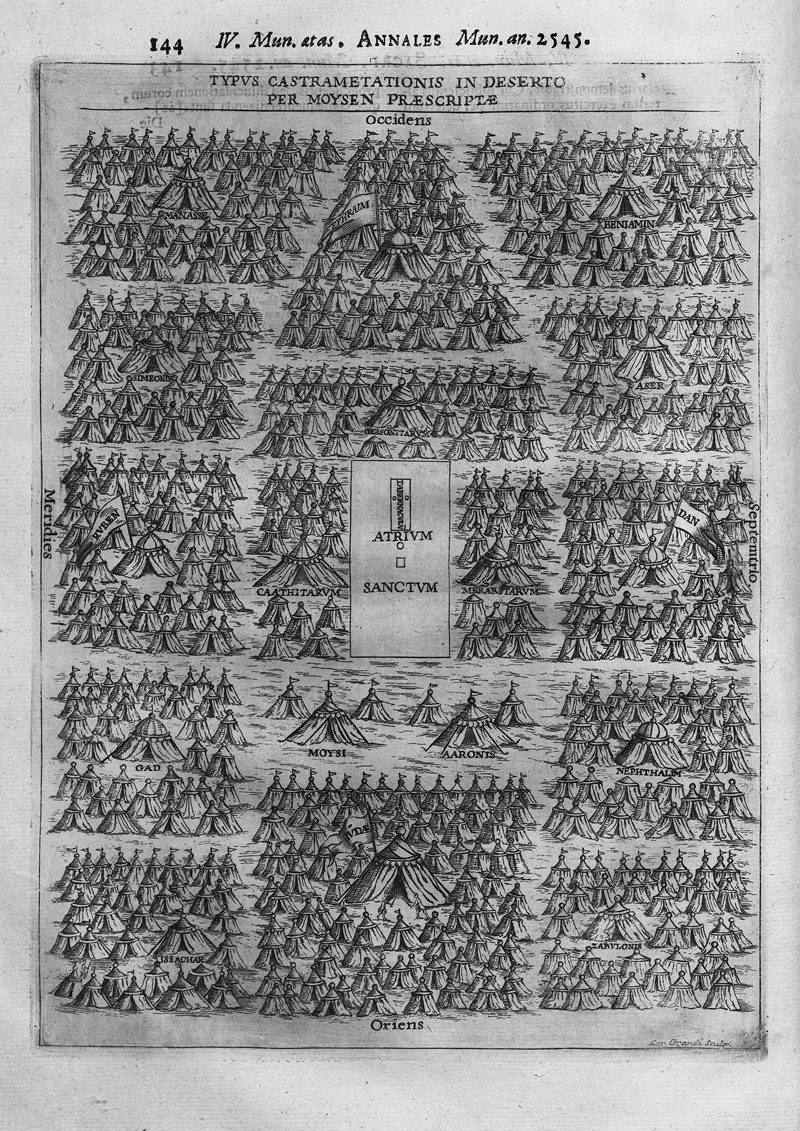 144 IV. Mun. ætas. ANNALES Mun. an. 2545.
TYPVS CASTRAMETATIONIS IN DESERTO
PER MOYSEN PRÆSCRIPTÆ
Occidens
MANASSE
EPHRAIM
BENIAMIN
SIMEONIS
ASER
GERSONITARVM
Meridies
RVBEN
CAATHITARVM
TABERNACVLVM
ATRIVM
SANCTVM
MERARITARVM
DAN
Septemtrio
GAD
MOYSI
AARONIS
NEPHTHALIM
IVDÆ
ISSACHAR
ZABVLONIS
Oriens
Sculp.